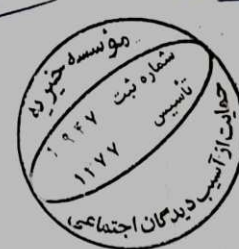 مؤسسه خیریه
شماره ثبت
۱۹۴۷
تأسیس
۱۱۷۷
حمایت از آسیب دیدگان اجتماعی